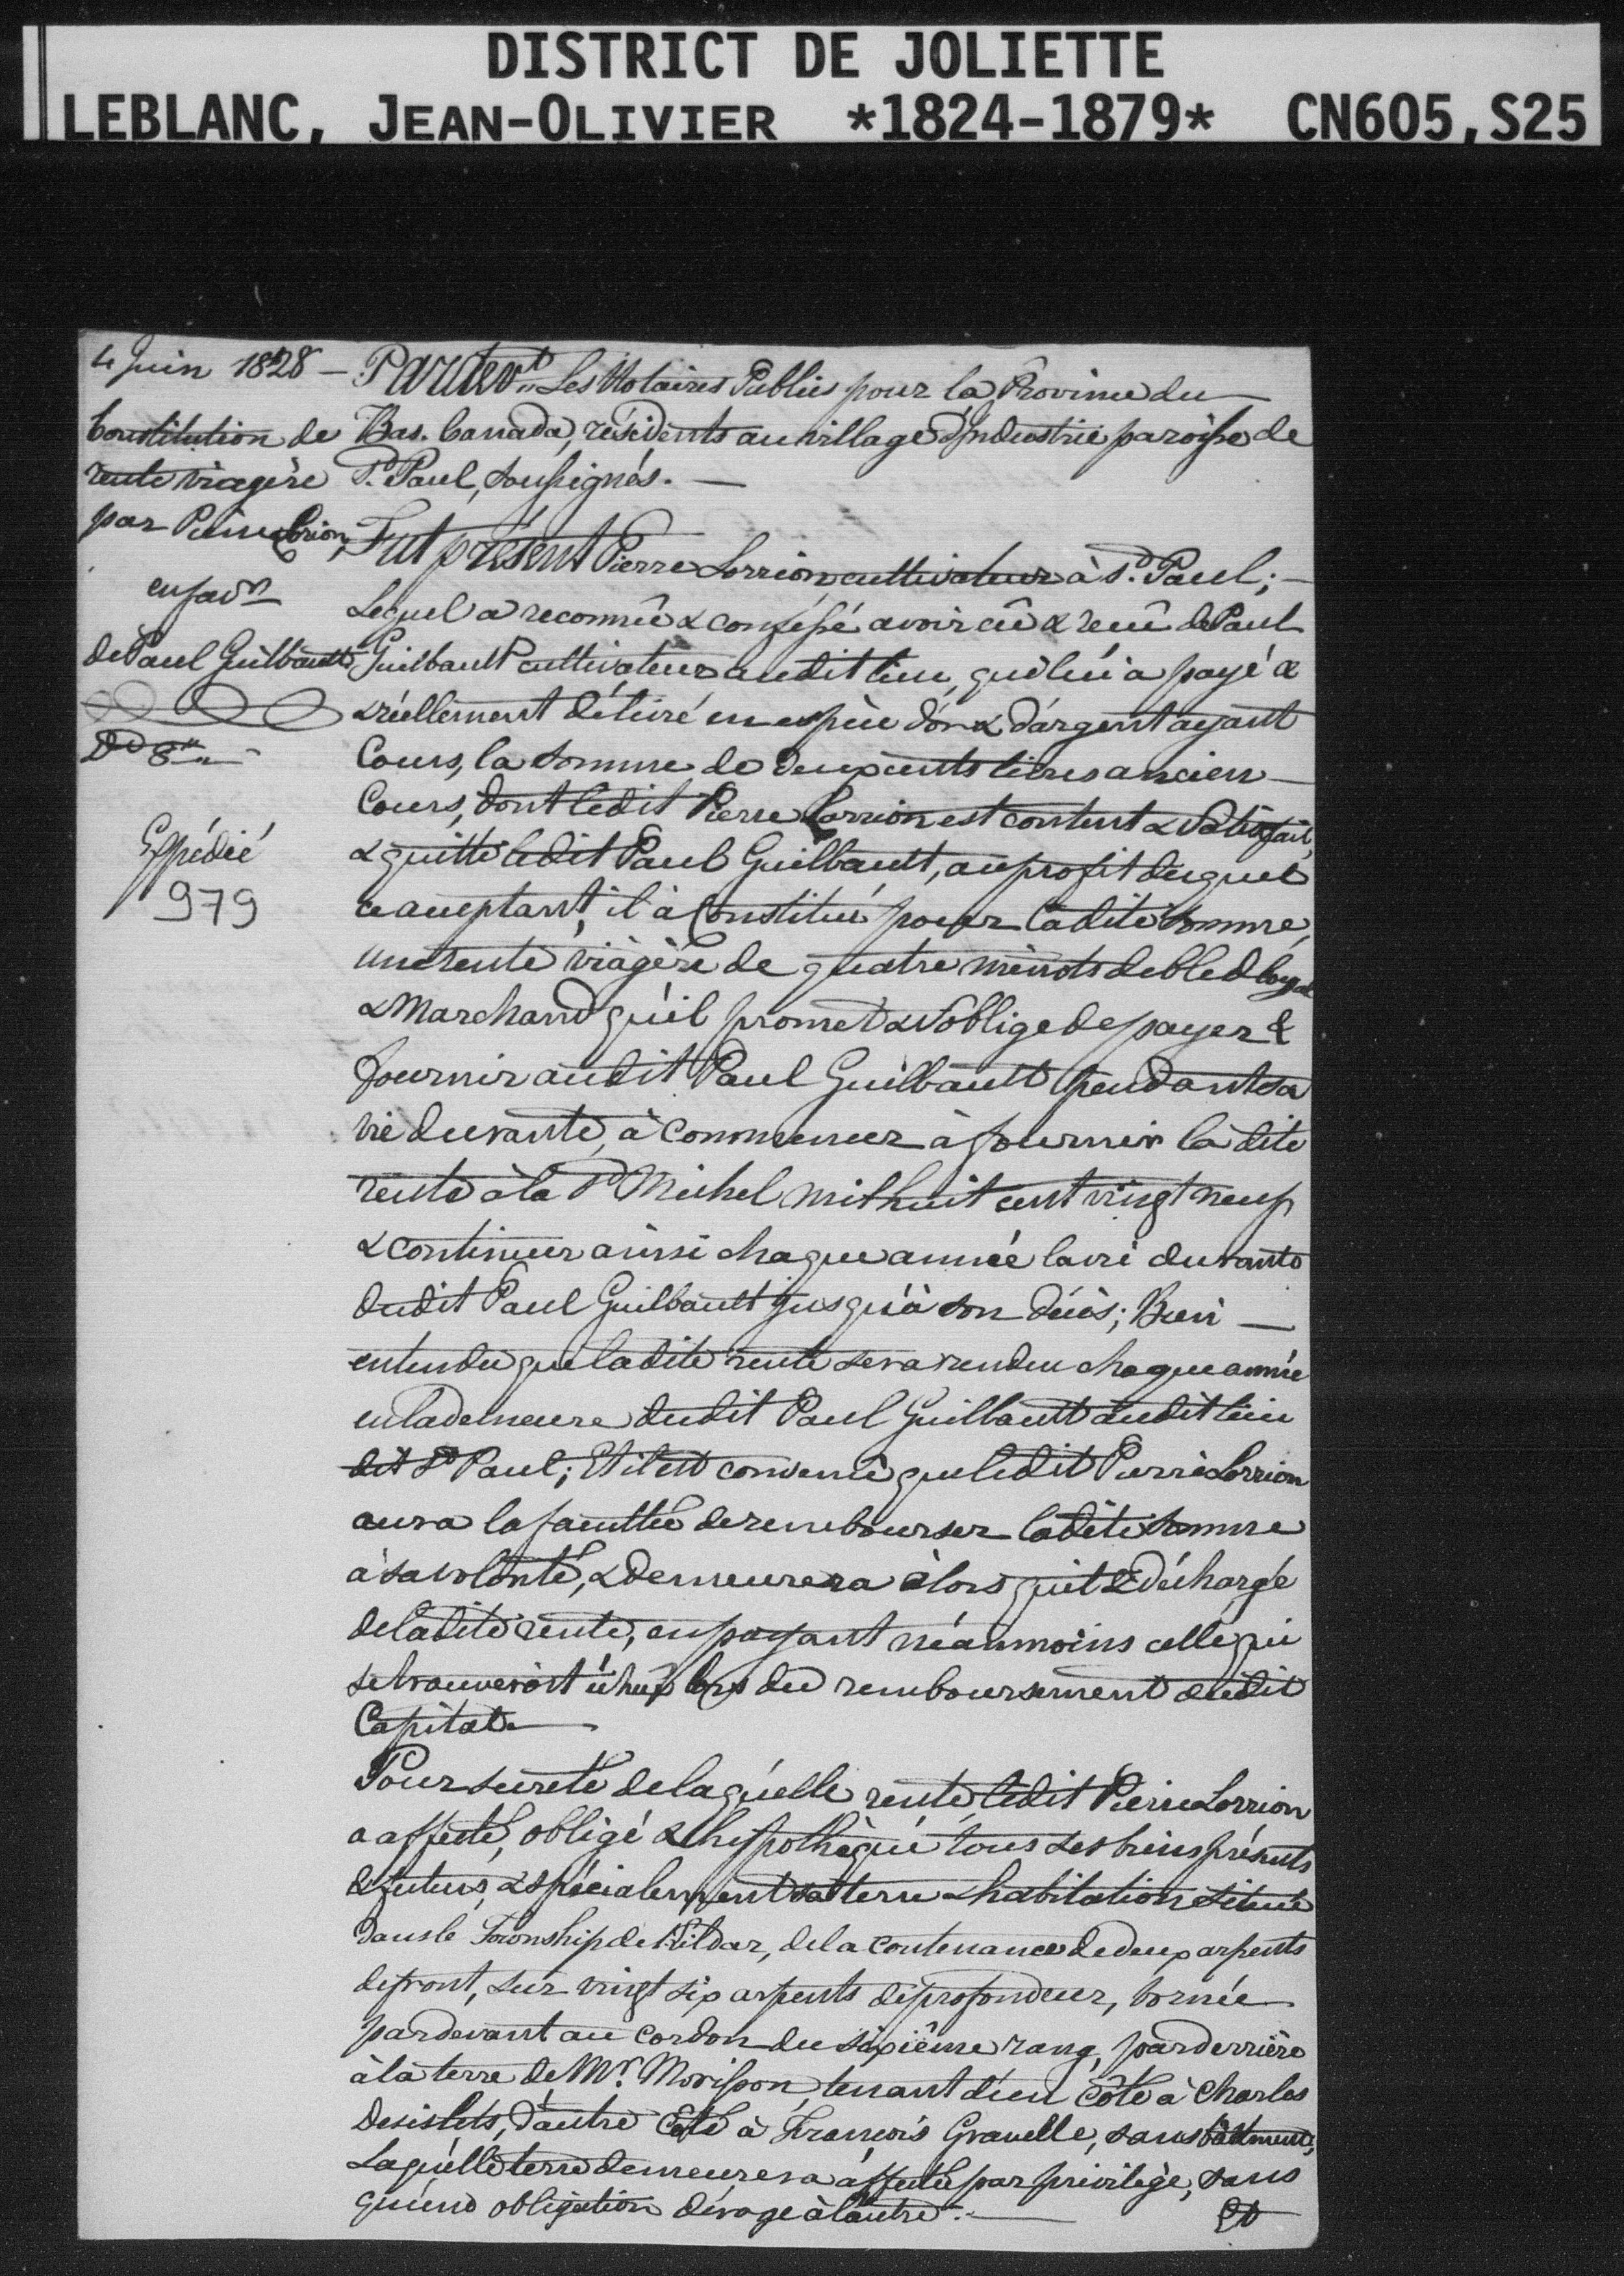 DISTRICT DE JOLIETTE
LEBLANC, JEAN-OLIVIER *1824-1879* CN605,S25
4 juin 1828 —
Constitution de
rente viagère
par Pierre Lorion
en favr
de Paul Guilbault
Expédié
979
Pardevt. Les Notaires Publics pour la Province du
Bas. Canada, résidents au village d'Industrie paroisse de
St. Paul, soussignés. —
Fut présent Pierre Lorrion, cultivateur à St. Paul; —
Lequel a reconnû & confessé avoir eû & reçû de Paul
Guilbault cultivateur audit lieu, qui lui a payé &
& réellement délivré en espèce d'or & d'argent ayant
Cours, la somme de deux cents livres ancien —
Cours, dont ledit Pierre Lorrion est content & satisfait,
& quitte ledit Paul Guilbault, au profit duquel
ce acceptant, il a Constitué pour ladite somme,
une rente viagère de quatre minots de bled loyal
& Marchand qu'il promet & s'oblige de payer &
fournir audit Paul Guilbault pendant sa
vie durante, à commencer à fournir la dite
rente à la St Michel mil huit cent vingt neuf
& continuer ainsi chaque année la vie durante
dudit Paul Guilbault jusqu'à son décès; Bien —
entendu que ladite rente sera rendue chaque année
en la demeure dudit Paul Guilbault audit lieu
dit St Paul; Et il est convenu que ledit Pierre Lorrion
aura la faculté de rembourser ladite somme
à sa volonté, & demeurera alors quitte & déchargé
de ladite rente, en payant néanmoins celle qui
se trouveroit échue lors du remboursement dudit
Capital. —
Pour sureté de laquelle rente, ledit Pierre Lorrion
a affecté, obligé & hypothèqué tous ses biens présents
& futurs, & spécialement sa terre & habitation située
dans le Township de Kildar, de la contenance de deux arpents
de front, sur vingt six arpents de profondeur, bornée
pardevant au cordon du sixième rang, par derrière
à la terre de Mr. Morisson, tenant d'un côté à Charles
Desislets, d'autre Côté à François Gravelle, sans bâtiment,
Laquelle terre demeurera affectée par privilège, sans
qu'une obligation déroge à l'autre. —
Et